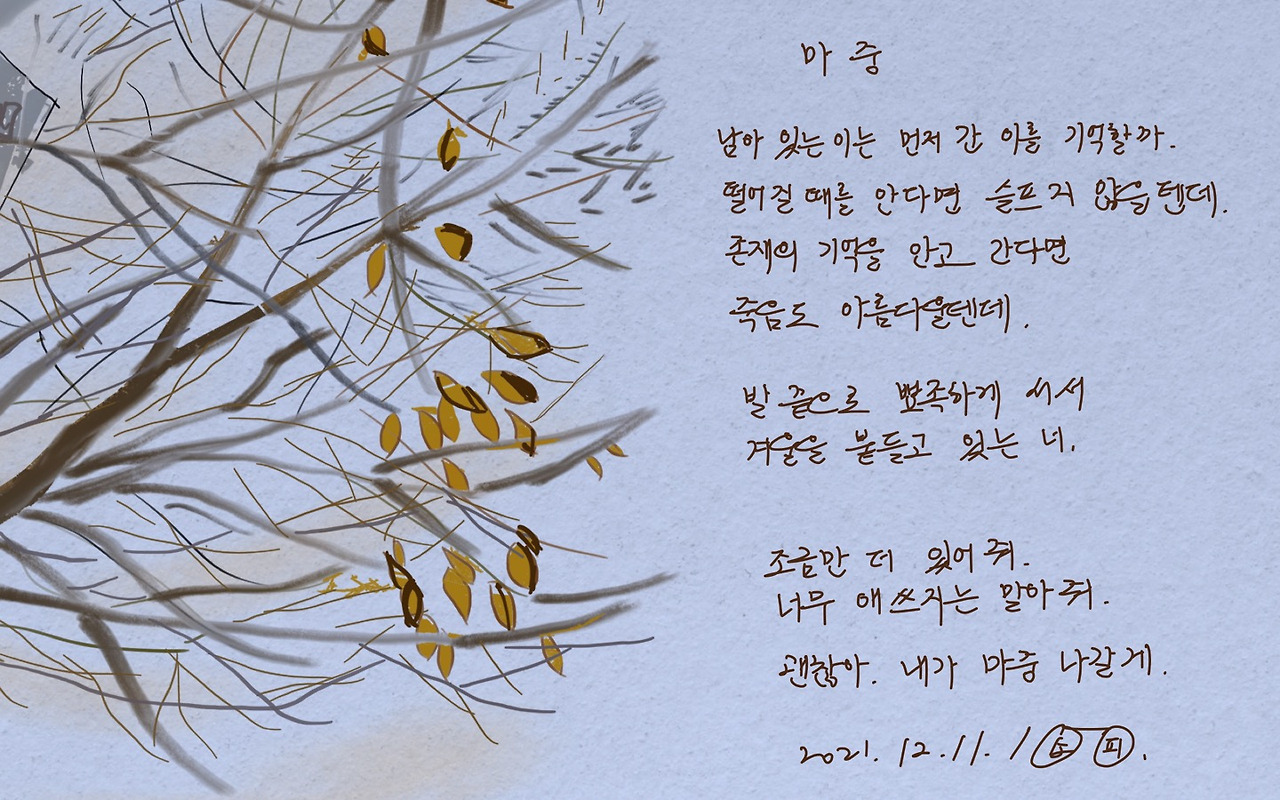 마 중
남아 있는 이는 먼저 간 이를 기억할까.
떨어질 때를 안다면 슬프지 않을텐데.
존재의 기억을 안고 간다면
죽음도 아름다울텐데.
발 끝으로 뾰족하게 서서
겨울을 붙들고 있는 너.
조금만 더 있어 줘.
너무 애쓰지는 말아 줘.
괜찮아. 내가 마중 나갈게.
2021. 12. 11. / 피.